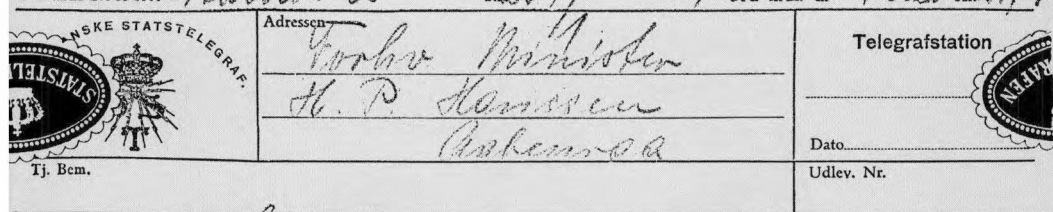 DANSKE STATSTELEGRAF.
STATSTEL
Adressen
Forhv Minister
H. P. Hanssen
Aabenraa
Telegrafstation
RAFEN
Dato
Tj. Bem.
Udlev. Nr.